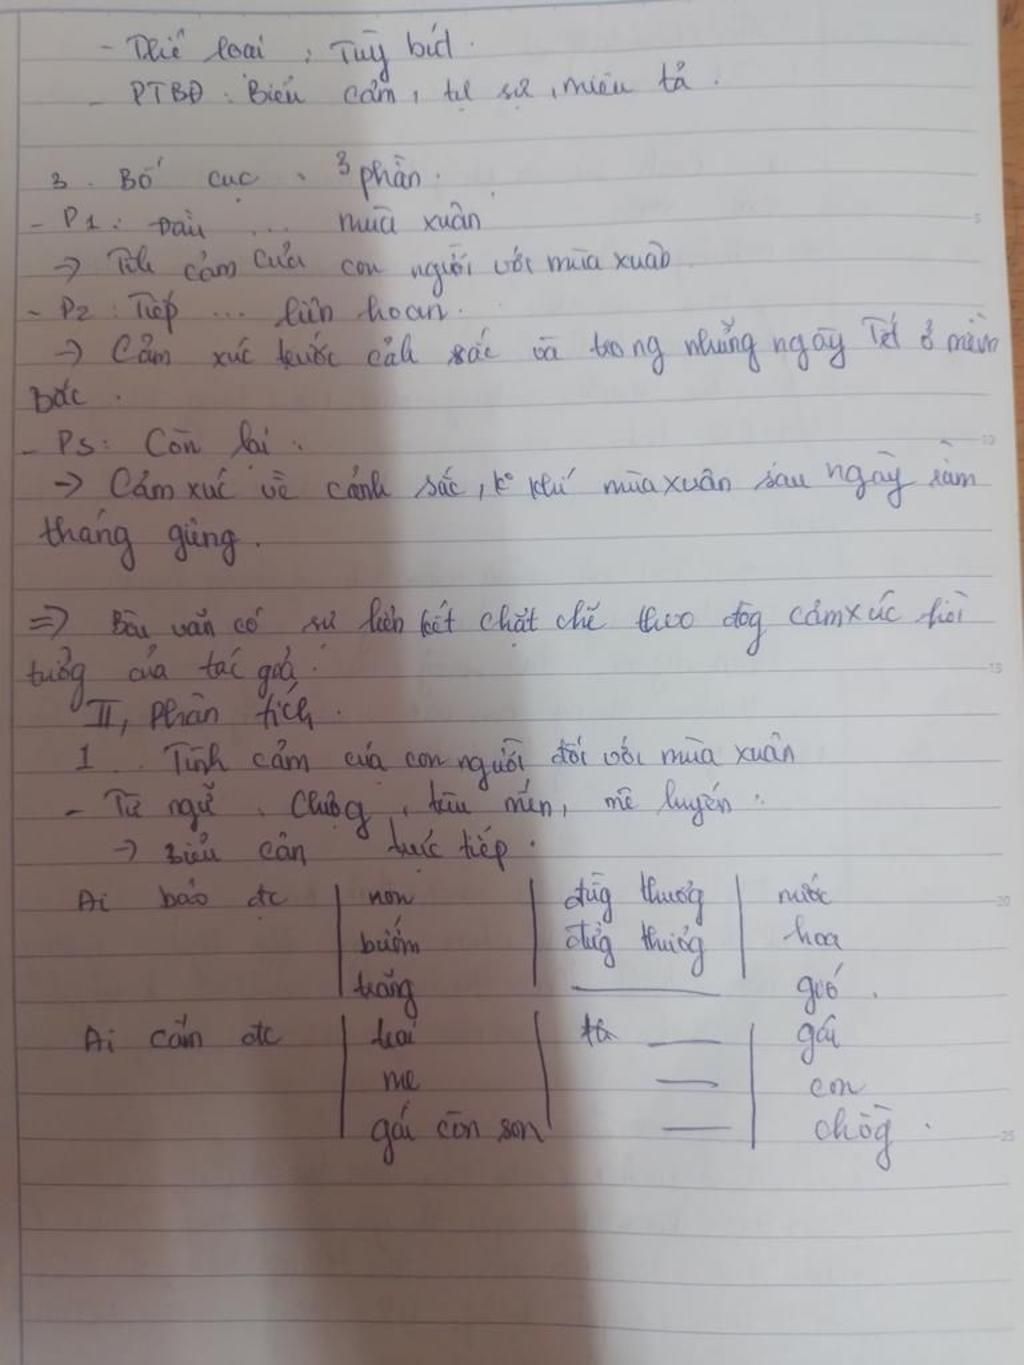 - Thể loại : Tùy bút.
- PTBĐ : Biểu cảm, tự sự, miêu tả.
3. Bố cục : 3 phần.
- P1 : Đầu ... mùa xuân
→ Tình cảm của con người với mùa xuân
- P2 : Tiếp ... liên hoan.
→ Cảm xúc trước cảnh sắc và trong những ngày Tết ở miền
bắc.
- P3 : Còn lại.
→ Cảm xúc về cảnh sắc, k° khí mùa xuân sau ngày rằm
tháng giêng.
=> Bài văn có sự liên kết chặt chẽ theo dòg cảm xúc hồi
tưởg của tác giả.
II, Phân tích.
1. Tình cảm của con người đối với mùa xuân
- Từ ngữ : Chuộg, trìu mến, mê luyến.
→ Biểu cảm trực tiếp.
Ai bảo đc non đừg thươg nước
bướm đừg thươg hoa
trăng ——— gió.
Ai cấm đc trai —— gái
mẹ —— con
gái còn son —— chồg.